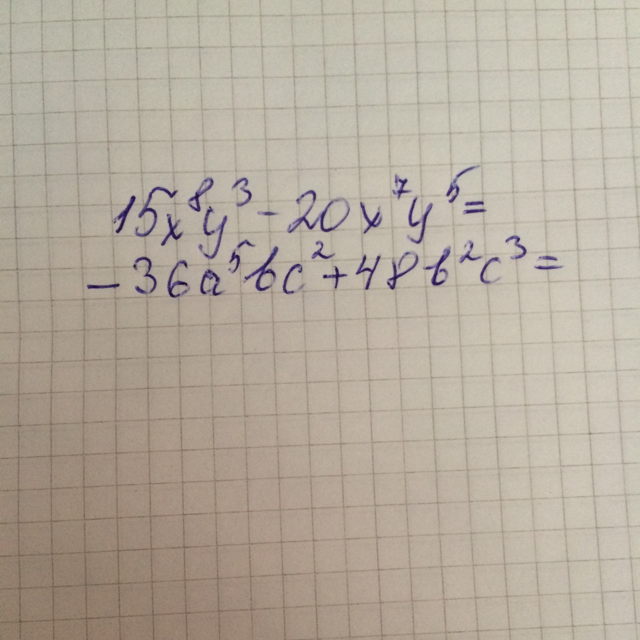 15x⁸y³ - 20x⁷y⁵=
- 36a⁵bc² + 48b²c³ =